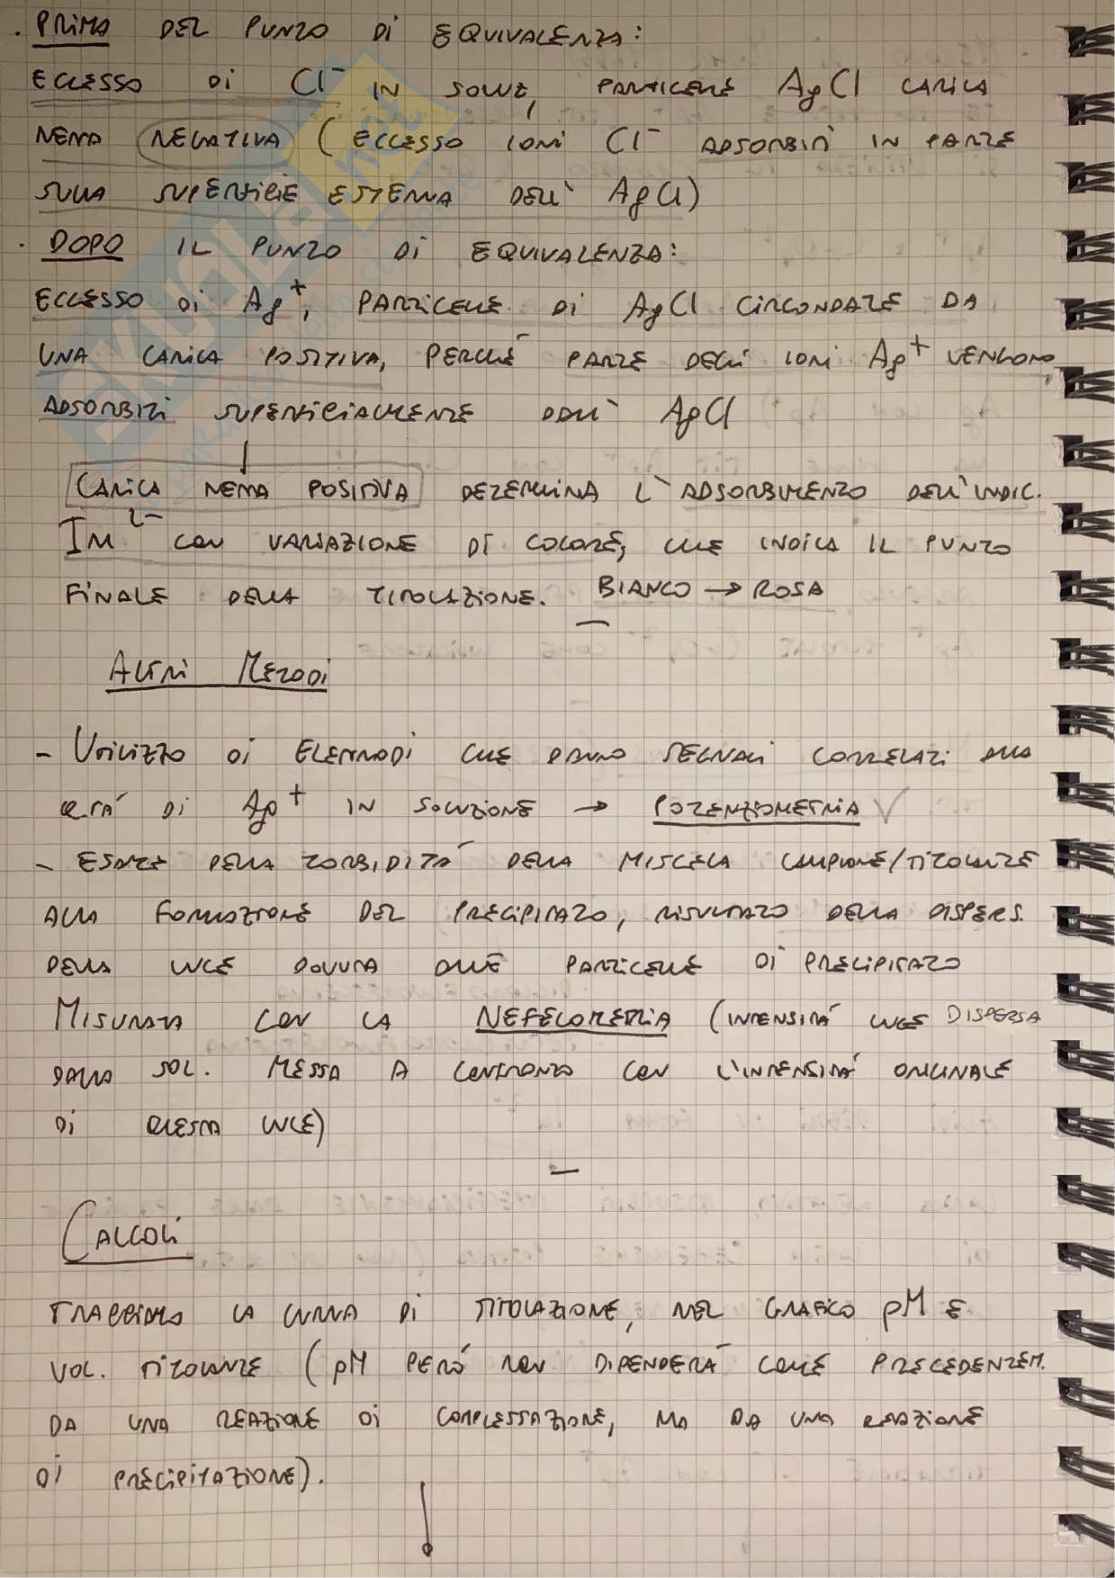 · PRIMA DEL PUNTO DI EQUIVALENZA:
ECCESSO DI Cl⁻ IN SOLUZ, PARTICELLE AgCl CARICA
NETTA NEGATIVA (ECCESSO IONI Cl⁻ ADSORBITI IN PARTE
SULLA SUPERFICIE ESTERNA DELL' AgCl)
· DOPO IL PUNTO DI EQUIVALENZA:
ECCESSO DI Ag⁺, PARTICELLE DI AgCl CIRCONDATE DA
UNA CARICA POSITIVA, PERCHÉ PARTE DEGLI IONI Ag⁺ VENGONO
ADSORBITI SUPERFICIALMENTE DALL' AgCl
↓
CARICA NETTA POSITIVA DETERMINA L'ADSORBIMENTO DELL'INDIC.
In²⁻ CON VARIAZIONE DI COLORE, CHE INDICA IL PUNTO
FINALE DELLA TITOLAZIONE. BIANCO → ROSA
ALTRI METODI
- UTILIZZO DI ELETTRODI CHE DANNO SEGNALI CORRELATI ALLA
Q.TÀ DI Ag⁺ IN SOLUZIONE → POTENZIOMETRIA √
- ESAME DELLA TORBIDITÀ DELLA MISCELA CAMPIONE/TITOLANTE
ALLA FORMAZIONE DEL PRECIPITATO, RISULTATO DELLA DISPERS.
DELLA LUCE DOVUTA ALLE PARTICELLE DI PRECIPITATO
MISURATA CON LA NEFELOMETRIA (INTENSITÀ LUCE DISPERSA
DALLA SOL. MESSA A CONFRONTO CON L'INTENSITÀ ORIGINALE
DI QUESTA LUCE)
CALCOLI
TRACCIAMO LA CURVA DI TITOLAZIONE, NEL GRAFICO pM E
VOL. TITOLANTE (pM PERÒ NON DIPENDERÀ COME PRECEDENTEM.
DA UNA REAZIONE DI COMPLESSAZIONE, MA DA UNA REAZIONE
DI PRECIPITAZIONE).